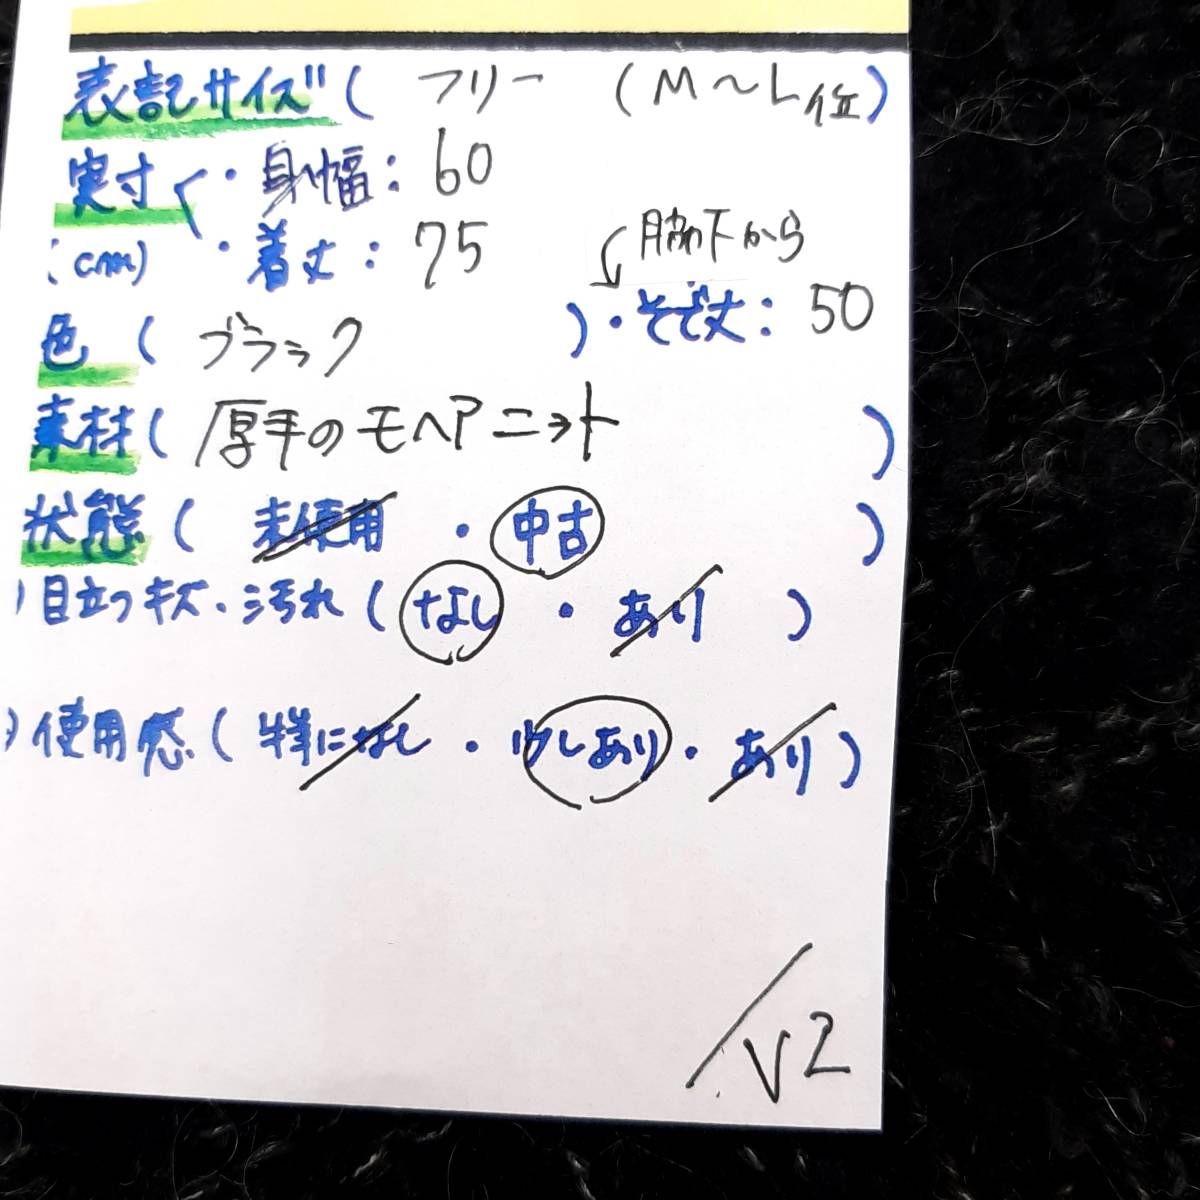 表記サイズ ( フリー (M〜L位)
実寸 ・身幅: 60
(cm) ・着丈: 75 脇下から
色 ( ブラック ) ・そで丈: 50
素材 ( 厚手のモヘアニット )
状態 ( 未使用 ・ 中古 )
)目立つキズ・汚れ ( なし ・ あり )
)使用感 ( 特になし ・ 少しあり ・ あり )
/V2